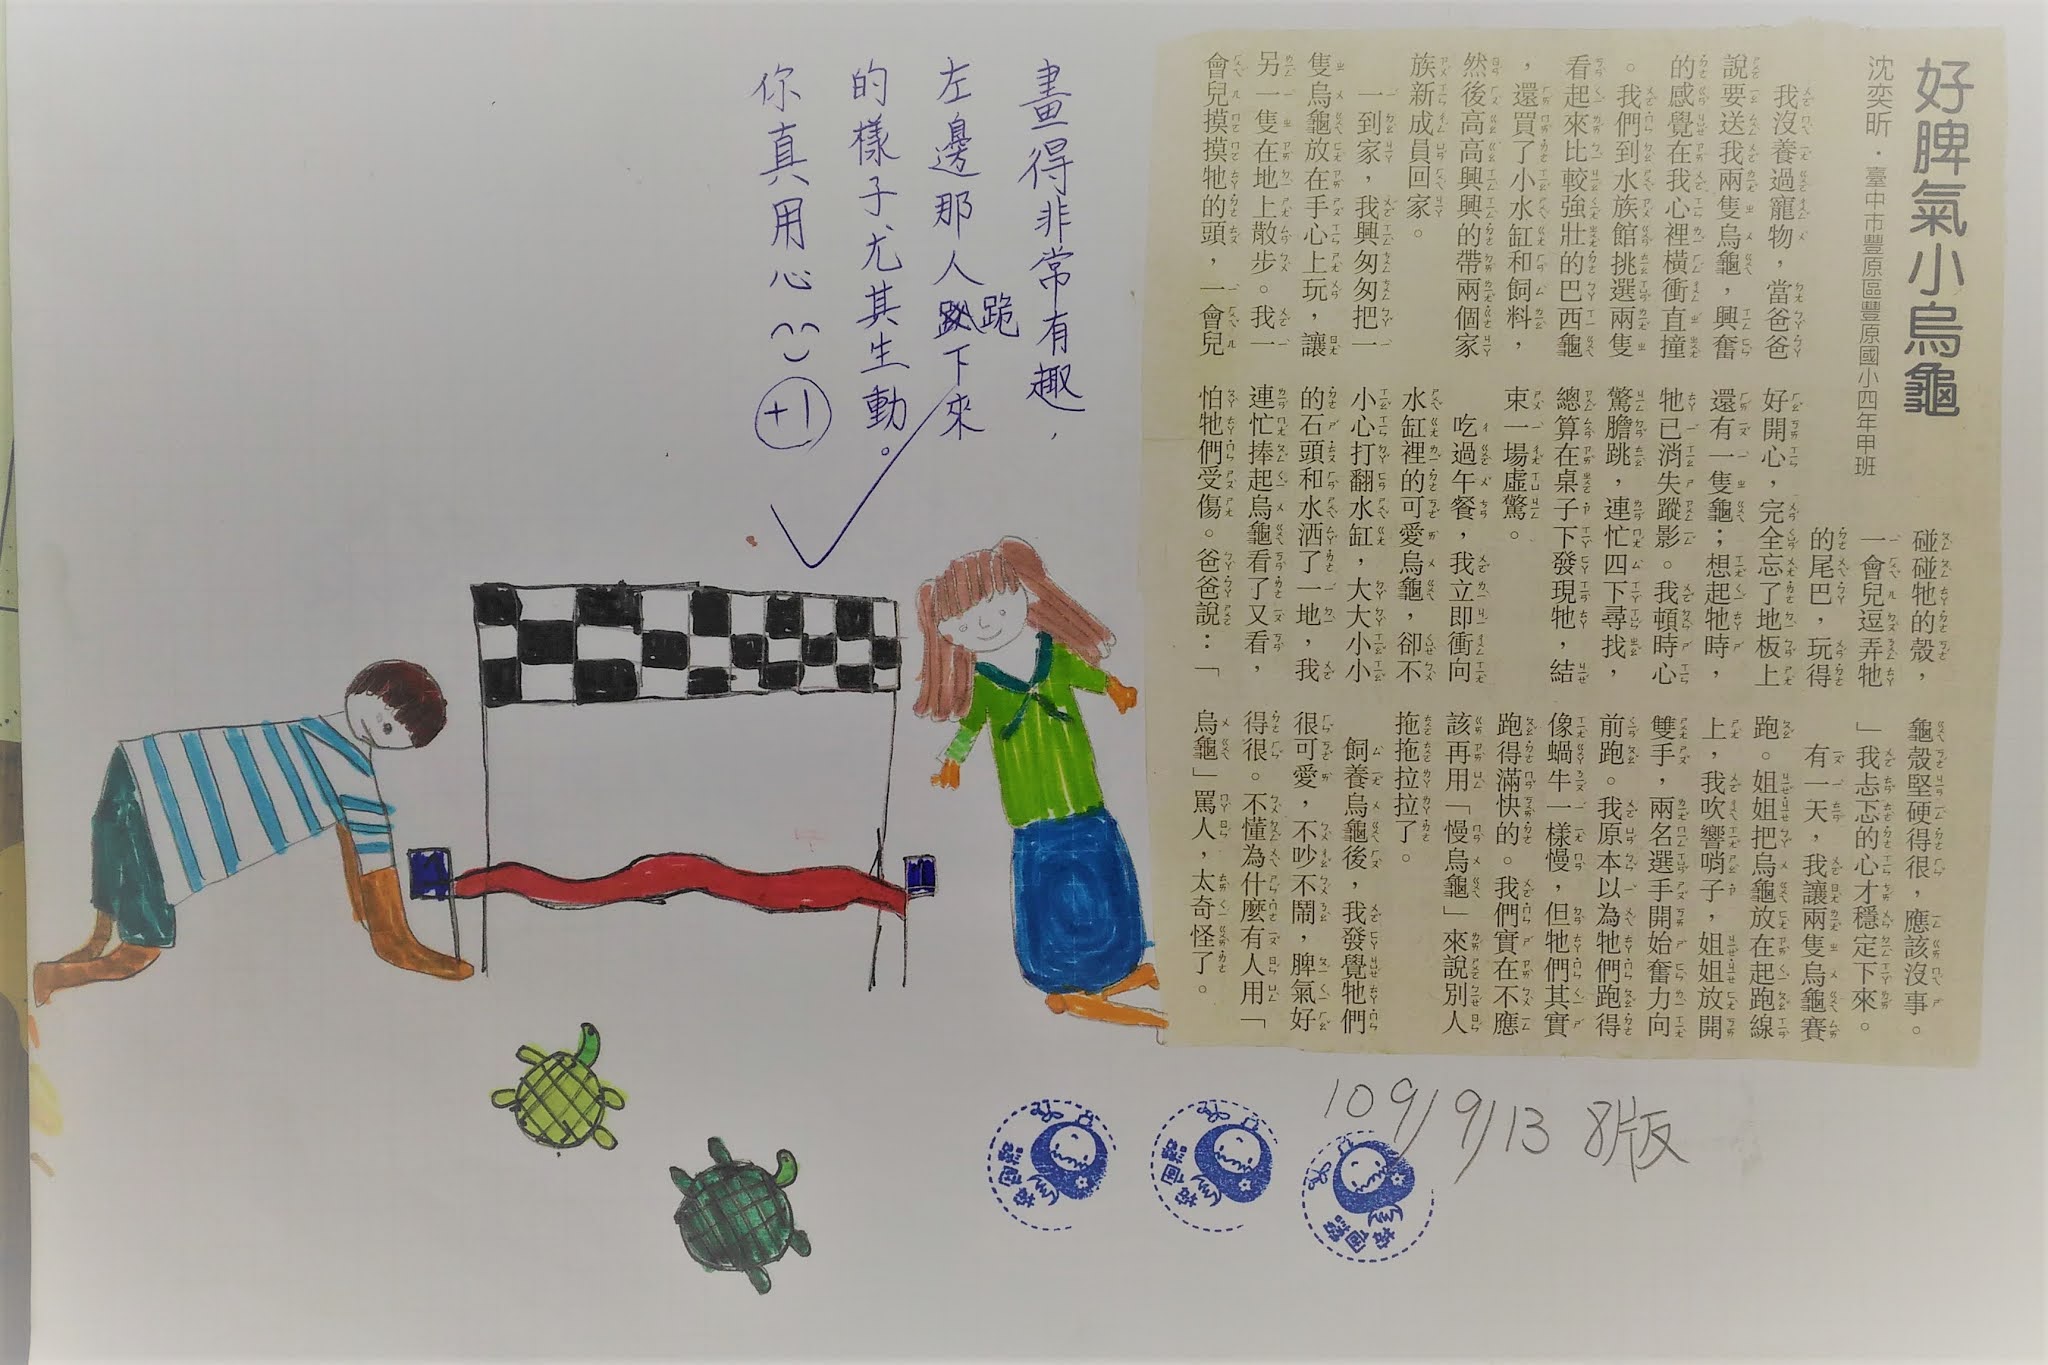 好脾氣小烏龜
沈奕昕．臺中市豐原區豐原國小四年甲班
我沒養過寵物，當爸爸
說要送我兩隻烏龜，興奮
的感覺在我心裡橫衝直撞
。我們到水族館挑選兩隻
看起來比較強壯的巴西龜
，還買了小水缸和飼料，
然後高高興興的帶兩個家
族新成員回家。
一到家，我興匆匆把一
隻烏龜放在手心上玩，讓
另一隻在地上散步。我一
會兒摸摸牠的頭，一會兒
碰碰牠的殼，
一會兒逗弄牠
的尾巴，玩得
好開心，完全忘了地板上
還有一隻龜；想起牠時，
牠已消失蹤影。我頓時心
驚膽跳，連忙四下尋找，
總算在桌子下發現牠，結
束一場虛驚。
吃過午餐，我立即衝向
水缸裡的可愛烏龜，卻不
小心打翻水缸，大大小小
的石頭和水洒了一地，我
連忙捧起烏龜看了又看，
怕牠們受傷。爸爸說：「
龜殼堅硬得很，應該沒事。
」我忐忑的心才穩定下來。
有一天，我讓兩隻烏龜賽
跑。姐姐把烏龜放在起跑線
上，我吹響哨子，姐姐放開
雙手，兩名選手開始奮力向
前跑。我原本以為牠們跑得
像蝸牛一樣慢，但牠們其實
跑得滿快的。我們實在不應
該再用「慢烏龜」來說別人
拖拖拉拉了。
飼養烏龜後，我發覺牠們
很可愛，不吵不鬧，脾氣好
得很。不懂為什麼有人用「
烏龜」罵人，太奇怪了。
畫得非常有趣，
左邊那人跪下來
的樣子尤其生動。
你真用心
+1
109/9/13 8版